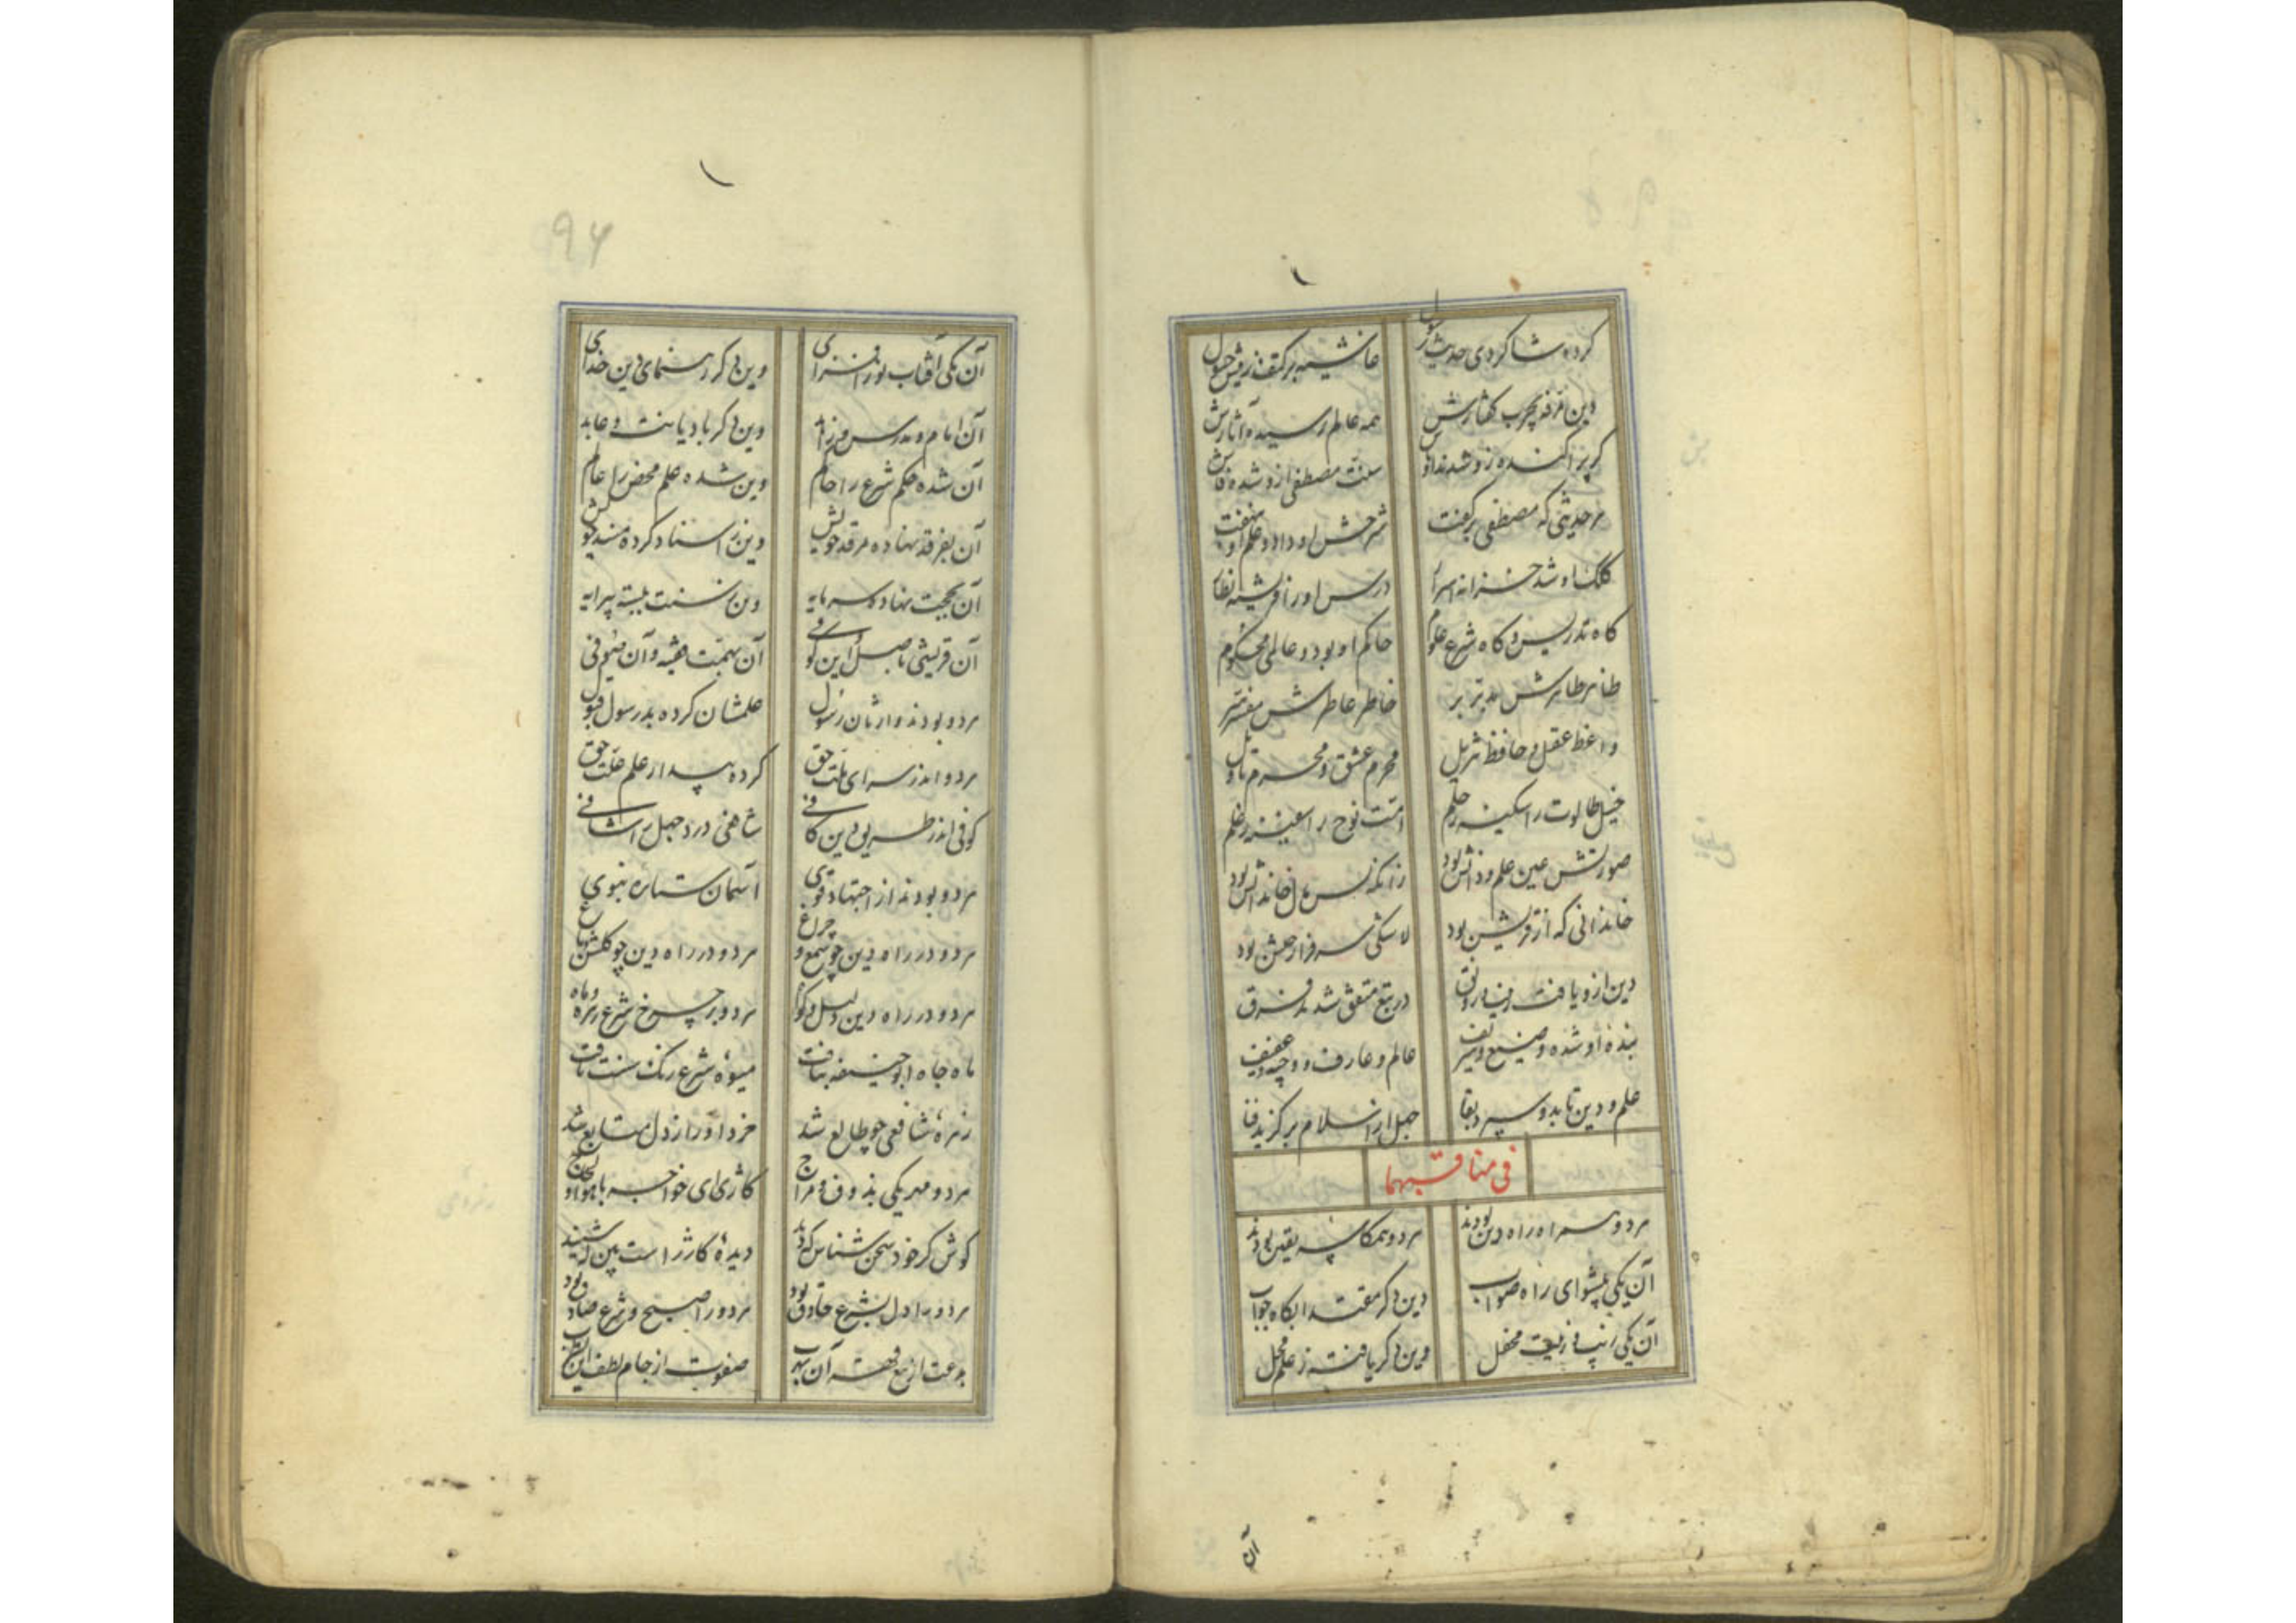 کرده شاکردی حدیث رسول
غاشیه بر کتف ز رفیش حول
وین
همه عالم رسیده آثارش
کر پراکنده زو شد
سنت مصطفی ازو شده فاش
هر حدیثی که مصطفی بر کفت
شرحش او داد و علم او
کلک او شد خزانه اسرار
درس او را فریشته نظار
کاه تدریس و کاه شرع علوم
حاکم او بود و عالمی محکوم
ظاهر طاهرش مدبر بر
خاطر عاطرش مفسر سر
واعظ عقل و حافظ تنزیل
محرم عشق و محرم تاویل
خیل طالوت را سکینه حلم
امت نوح را سفینه علم
صورتش عین علم و دانش بود
زانکه نسل خاندانش بود
خاندانی که از قریش بود
لا شکی سرفراز جیش بود
دین ازو یافت زیب و رونق
در تبع متفق شدند فرق
بنده او شده وضیع و شریف
عالم و عارف و وجیه و عفیف
علم و دین تا بدو سپرد بقا
جهل از اسلام برکزید فنا
فی مناقبهما
هر دو سر راه دین بودند
هر دو همکاسه یقین بودند
آن یکی پیشوای راه صواب
وین دکر مقتدا بکاه جواب
آن یکی زیب و زینت محفل
وین دکر یافته ز علم محل
آن
۹۶
آن یکی آفتاب نورافزای
وین دکر رهنمای دین خدای
آن امام و مدرس و زاهد
وین دکر با دیانت و عابد
آن شده حکم شرع را حاکم
وین شده علم محض را عالم
آن بفرقد نهاده مرقد خویش
وین ز اسناد کرده مسند کیش
آن بحجت نهاده سرمایه
وین ز سنت ببسته پیرایه
آن قریشی باصل این کوفی
آن بهمت فقیه و آن صوفی
هر دو بودند وارثان رسول
علمشان کرده بد رسول قبول
هر دو اندر سرای ملت حق
کرده بیدار علم علت حق
کوفی اندر طریق دین کافی
شافعی درد جهل را شافی
هر دو بودند از اجتهاد قوی
آسمان ستاره نبوی
هر دو در راه دین چو شمع و چراغ
هر دو در راه دین چو کلشن باغ
هر دو در راه دین دلیل و کواه
هر دو بر چرخ شرع زهره و ماه
ماه جاه ابوحنیفه بتافت
میوه شرع رنک سنت یافت
زهره شافعی چو طالع شد
خرد او را ز دل متابع شد
هر دو مهر یکی بذوق و مزاج
کاژی ای خواجه با هوا و لجاج
کوش کر خود سخن شناس که دید
دیده کاژ راست بین که شنید
هر دو را دل بشرع حاذق بود
هر دو را صبح و شرع صادق بود
بدعت از تیغ فقه آن بهرب
صفوت از جام لطف این بطرب